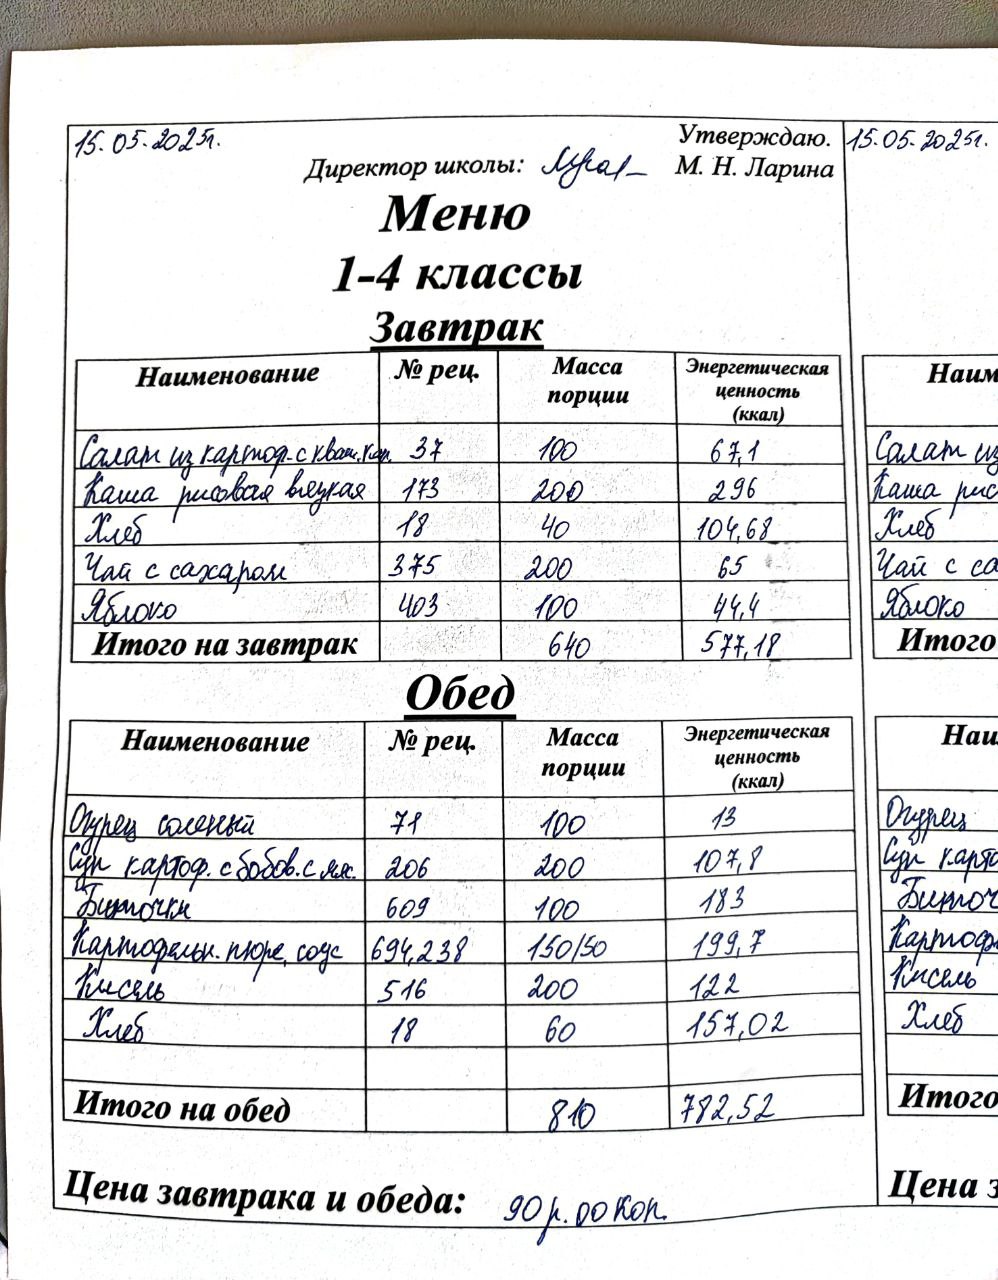 15.05.2025г. Утверждаю. 15.05.2025г.
Директор школы: М. Н. Ларина
Меню
1-4 классы
Завтрак
Наименование № рец. Масса порции Энергетическая ценность (ккал)
Салат из картоф. с кваш. кап. 37 100 67,1
Каша рисовая вязкая 173 200 296
Хлеб 18 40 104,68
Чай с сахаром 375 200 65
Яблоко 403 100 44,4
Итого на завтрак 640 577,18
Обед
Наименование № рец. Масса порции Энергетическая ценность (ккал)
Огурец соленый 71 100 13
Суп картоф. с бобов. с мяс. 206 200 107,8
Биточки 609 100 183
Картофельн. пюре, соус 694,238 150/50 199,7
Кисель 516 200 122
Хлеб 18 60 157,02
Итого на обед 810 782,52
Цена завтрака и обеда: 90 р. 00 коп.
Наим
Салат из
Каша рис
Хлеб
Чай с са
Яблоко
Итого
Наи
Огурец
Суп карто
Биточ
Картоф
Кисель
Хлеб
Итого
Цена з